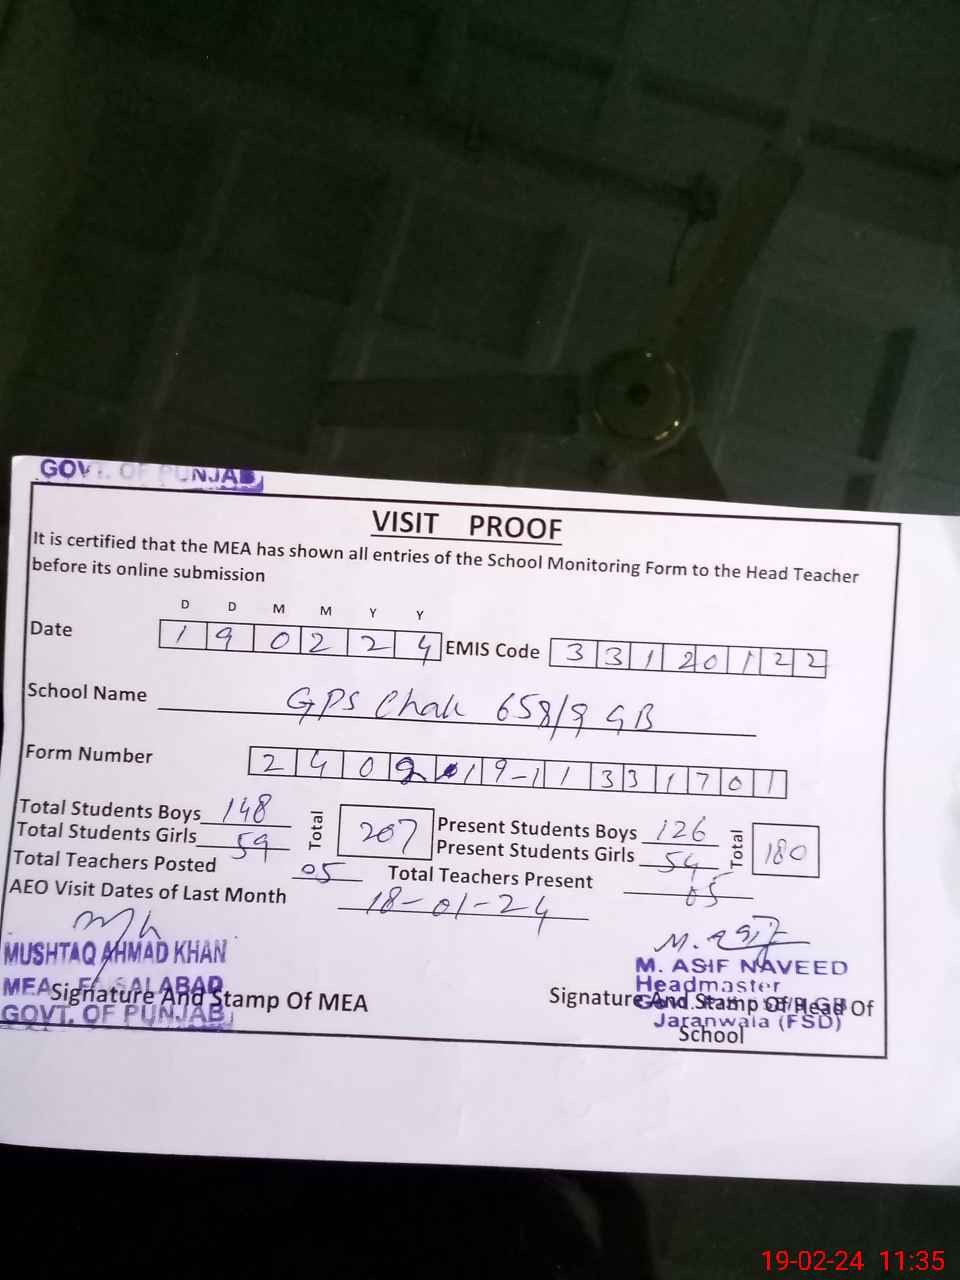 GOVT. OF PUNJAB
VISIT PROOF
It is certified that the MEA has shown all entries of the School Monitoring Form to the Head Teacher
before its online submission
D D M M Y Y
Date 1 9 0 2 2 4 EMIS Code 3 3 1 2 0 1 2 2
School Name GPS Chak 658/9 GB
Form Number 2 4 0 2 1 9 - 1 1 3 3 1 7 0 1
Total Students Boys 148 Total 207 Present Students Boys 126 Total 180
Total Students Girls 59 Present Students Girls 54
Total Teachers Posted 05 Total Teachers Present 05
AEO Visit Dates of Last Month 18-01-24
M. Asif
MUSHTAQ AHMAD KHAN
MEA FAISALABAD
GOVT. OF PUNJAB
Signature And Stamp Of MEA
M. ASIF NAVEED
Headmaster
Jaranwala (FSD)
Signature And Stamp Of Head Of
School
19-02-24 11:35